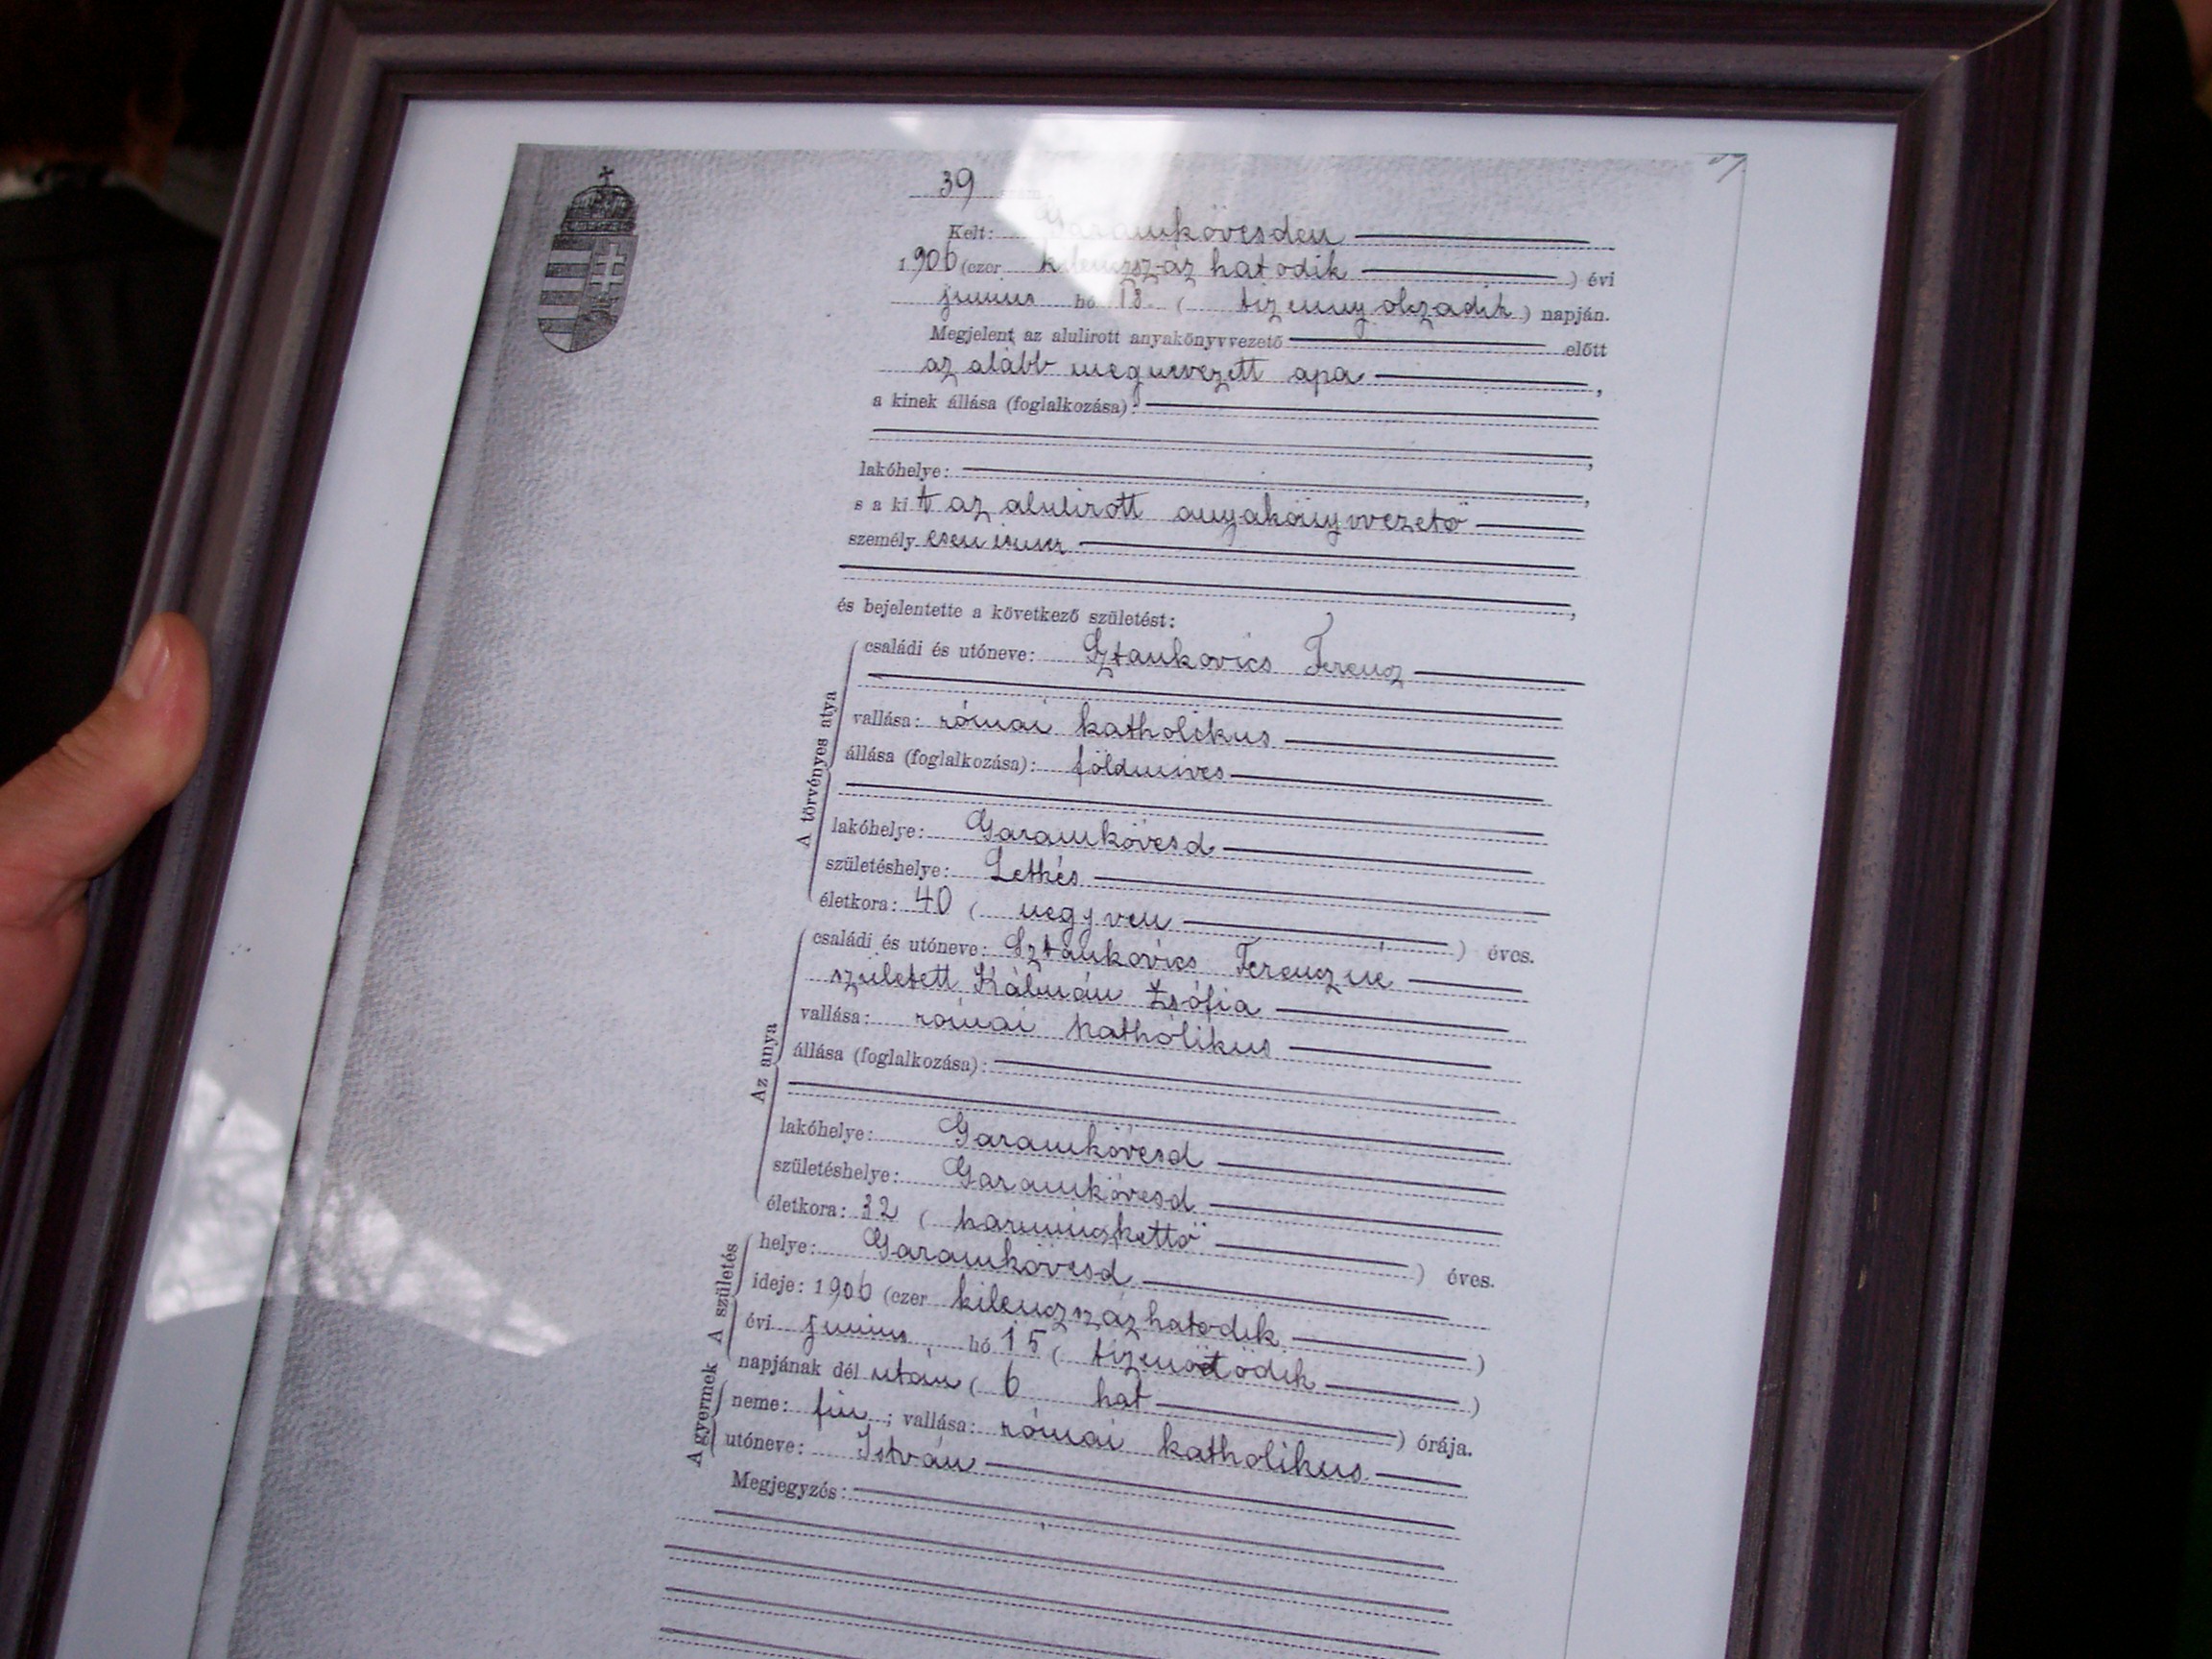 39 szám
Kelt: Garamkövesden
1906 (ezer kilenczszáz hatodik ) évi
junius hó 18. ( tizennyolczadik ) napján.
Megjelent az alulirott anyakönyvvezető előtt
az alább megnevezett apa ,
a kinek állása (foglalkozása):
,
lakóhelye: ,
s a kit az alulirott anyakönyvvezető
személyesen ismer
,
és bejelentette a következő születést:
A törvényes atya
családi és utóneve: Sztankovics Ferencz
vallása: római katholikus
állása (foglalkozása): földmives
lakóhelye: Garamkövesd
születéshelye: Letkés
életkora: 40 ( negyven ) éves.
Az anya
családi és utóneve: Sztankovics Ferenczné
született Kálmán Zsófia
vallása: római katholikus
állása (foglalkozása):
lakóhelye: Garamkövesd
születéshelye: Garamkövesd
életkora: 32 ( harminczkettő ) éves.
A születés
helye: Garamkövesd
ideje: 1906 (ezer kilenczszázhatodik )
évi junius hó 15 ( tizenötödik )
napjának dél után ( 6 hat ) órája.
A gyermek
neme: fiu ; vallása: római katholikus
utóneve: István
Megjegyzés: